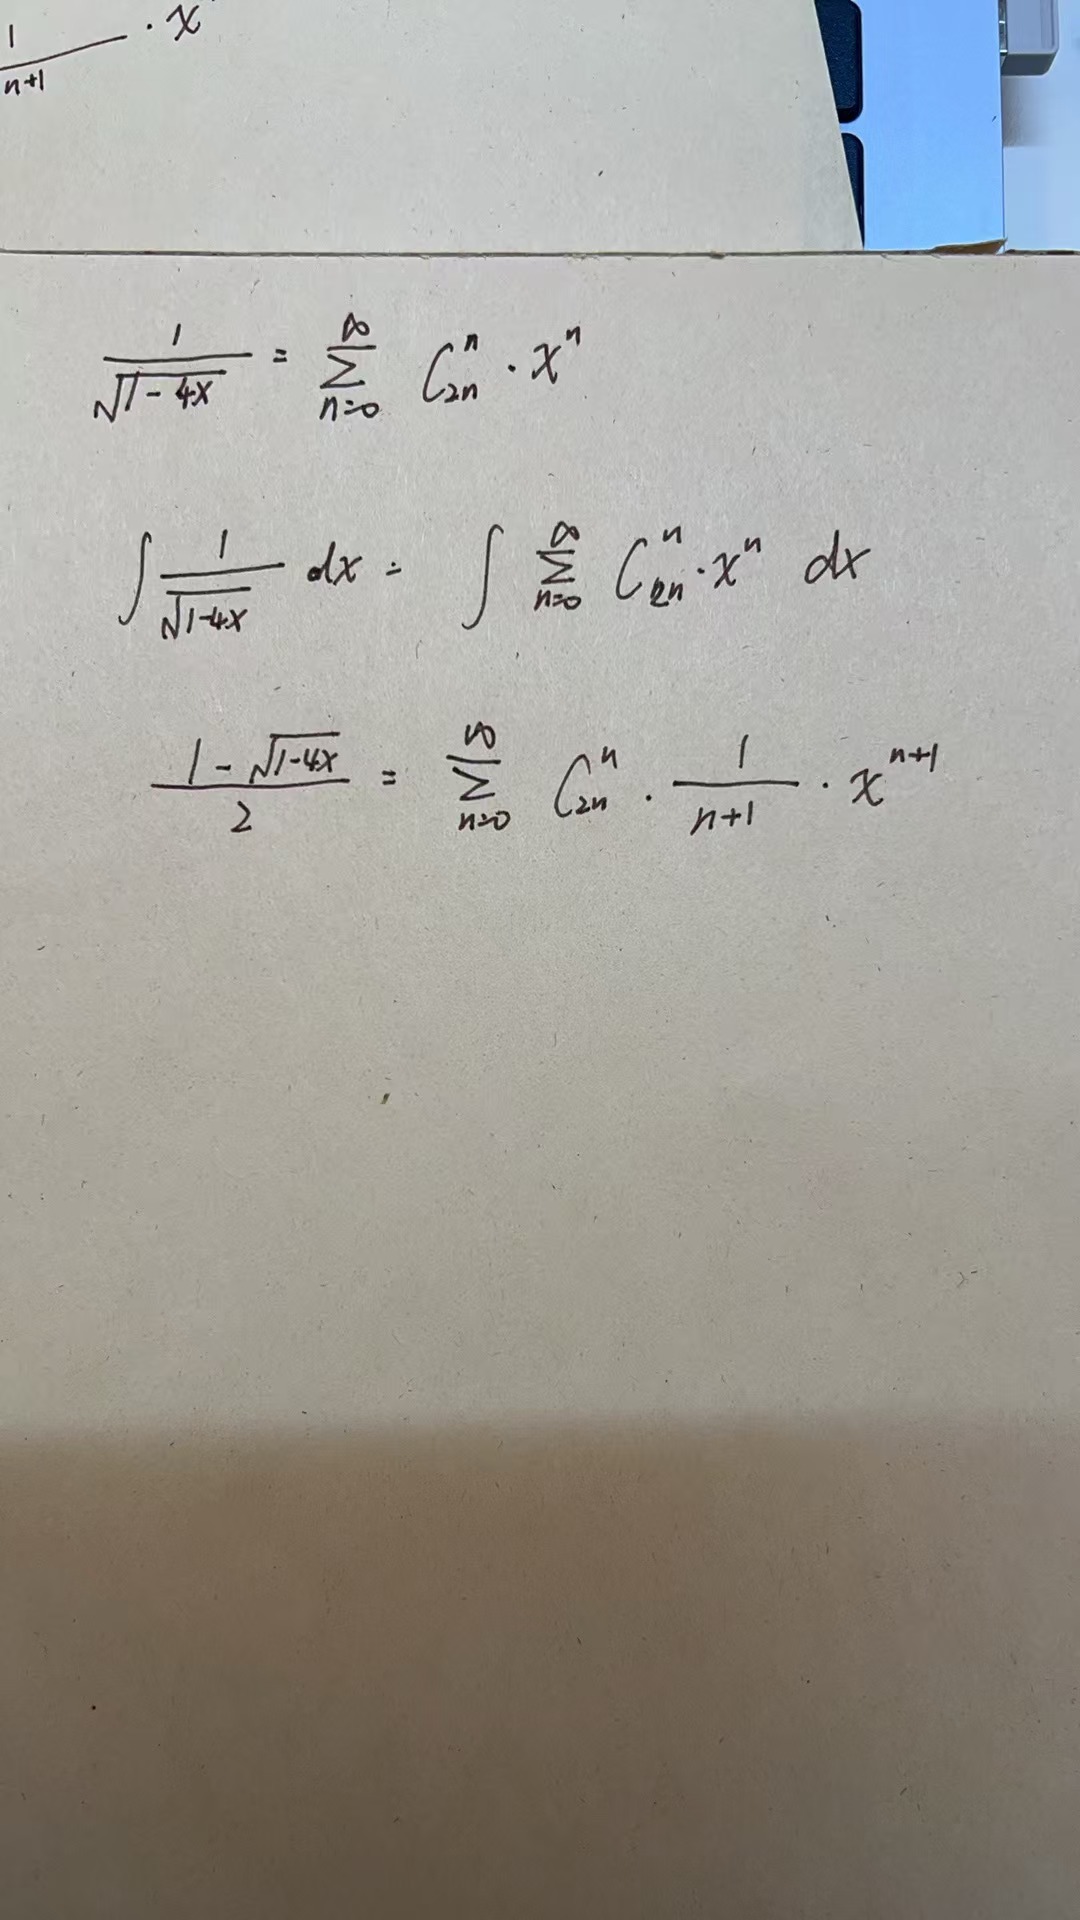 1/(n+1) · x
1/√(1-4x) = ∑_{n=0}^{∞} C_{2n}^{n} · x^n
∫ 1/√(1-4x) dx = ∫ ∑_{n=0}^{∞} C_{2n}^{n} · x^n dx
(1-√(1-4x))/2 = ∑_{n=0}^{∞} C_{2n}^{n} · 1/(n+1) · x^{n+1}